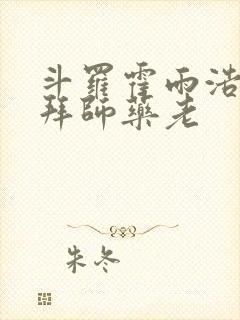 斗羅霍雨浩
拜師藥老
朱冬